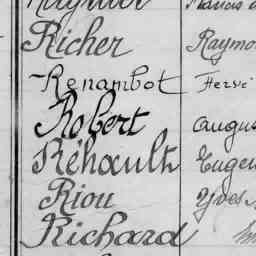 Richer Raymo
Renambot Hervé
Robert Augus
Réhault Eugen
Riou Yves
Richard